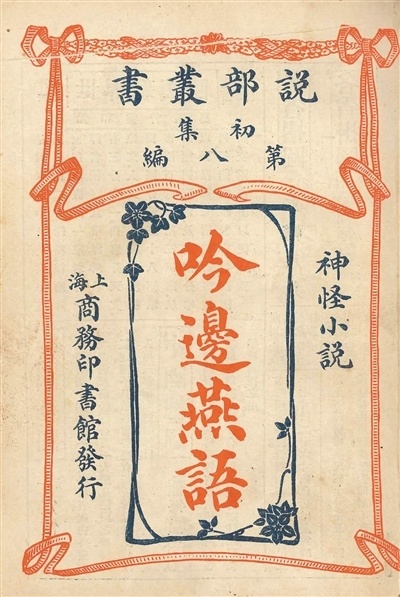 説部叢書
初集
第八編
神怪小説
吟邊燕語
上海商務印書館發行